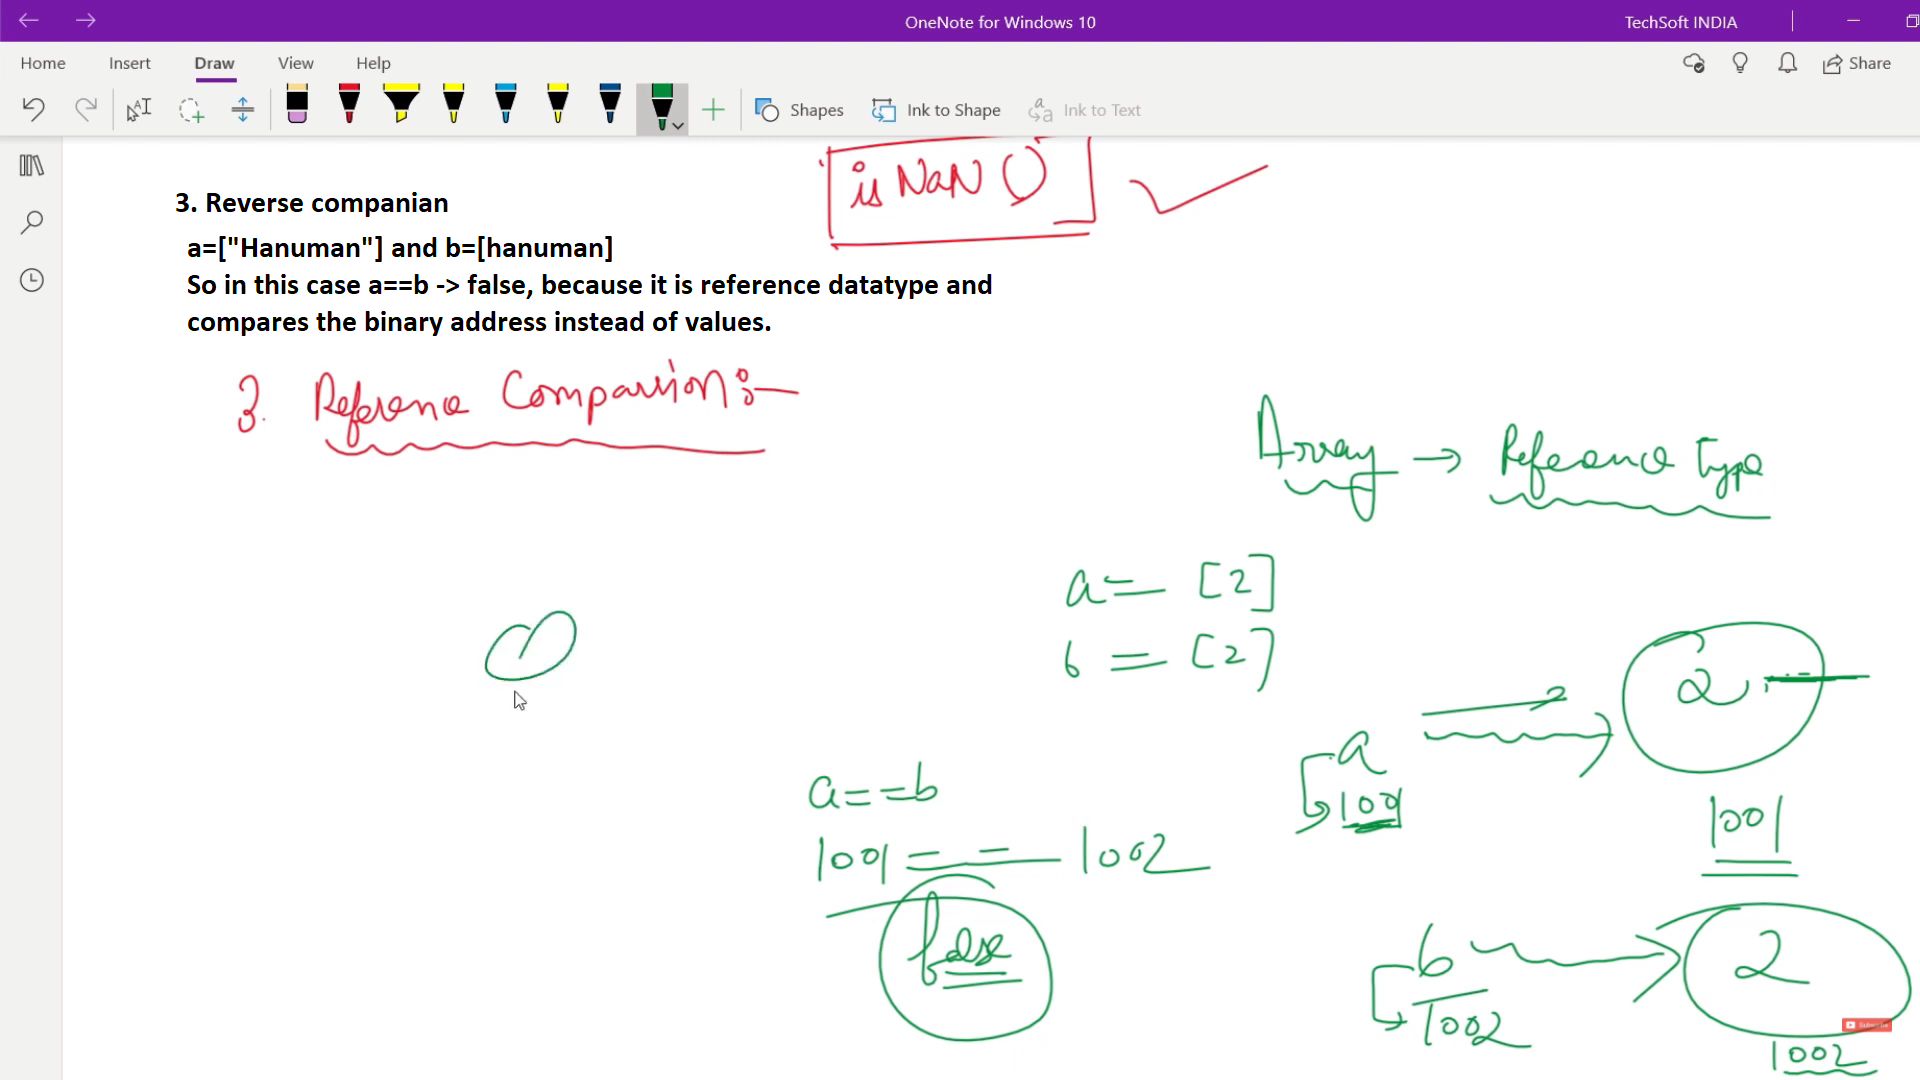 OneNote for Windows 10
TechSoft INDIA
Home Insert Draw View Help
Share
Shapes Ink to Shape Ink to Text
is NaN ()
3. Reverse companian
a=["Hanuman"] and b=[hanuman]
So in this case a==b -> false, because it is reference datatype and
compares the binary address instead of values.
3. Reference Comparsion:-
Array → Reference Type
a = [2]
b = [2]
2
a
1001
1001
a==b
1001 == 1002
false
b
1002
2
Subscribe
1002